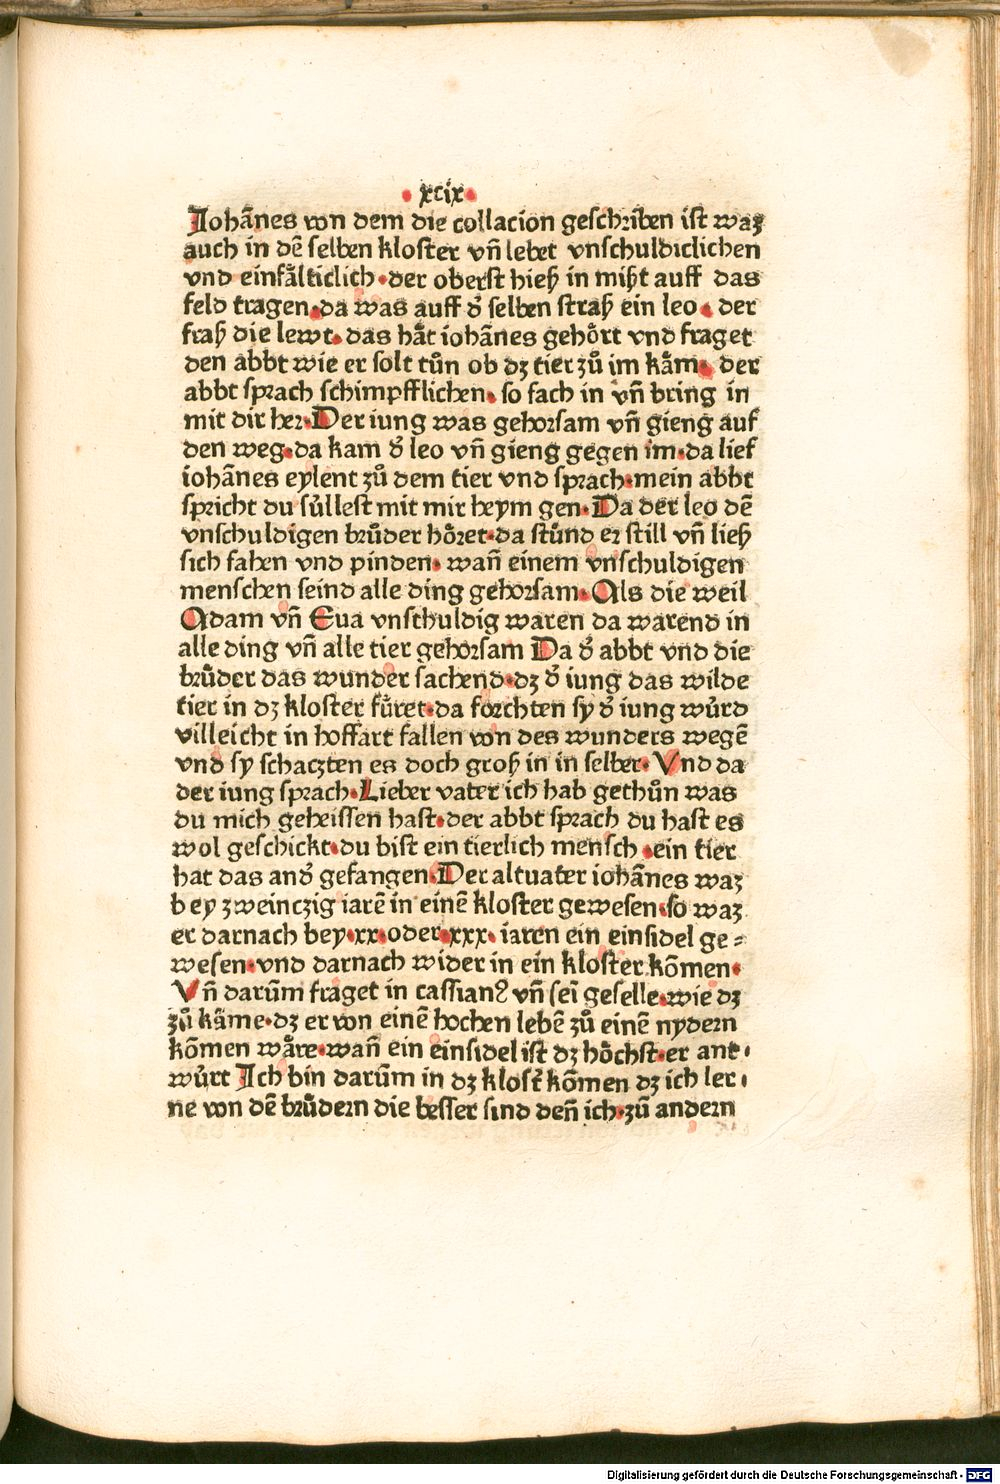 ·xcix·
Johãnes von dem die collacion geschriben ist waz
auch in dẽ selben kloster vñ lebet vnschuldiclichen
vnd einfålticlich·der oberst hieß in mißt auff das
feld tragen·da was auff ď selben straß ein leo·der
fraß die lewt·das håt iohãnes gehört vnd fraget
den abbt wie er solt tůn ob dz tier zů im kåm·der
abbt sprach schimpfflichen·so fach in vñ bring in
mit dir her·Der iung was gehorsam vñ gieng auf
den weg·da kam ď leo vñ gieng gegen im·da lief
iohãnes eylent zů dem tier vnd sprach·mein abbt
spricht du sůllest mit mir heym gen·Da der leo dẽ
vnschuldigen brůder höret·da stůnd er still vñ ließ
sich fahen vnd pinden·wañ einem vnschuldigen
menschen seind alle ding gehorsam·Als die weil
Adam vñ Eua vnschuldig waren da warend in
alle ding vñ alle tier gehorsam Da ď abbt vnd die
brůder das wunder sachend·dz ď iung das wilde
tier in dz kloster fůret·da forchten sy ď iung wůrd
villeicht in hoffart fallen von des wunders wegẽ
vnd sy schaczten es doch groß in in selber·Vnd da
der iung sprach·Lieber vater ich hab gethůn was
du mich geheissen hast·der abbt sprach du hast es
wol geschickt·du bist ein tierlich mensch·ein tier
hat das anď gefangen·Der altuater iohãnes waz
bey zweinczig iarẽ in einẽ kloster gewesen·so waz
er darnach bey·xx·oder·xxx·iaren ein einsidel ge⸗
wesen·vnd darnach wider in ein kloster kõmen·
Vñ darũm fraget in cassianꝰ vñ seĩ geselle·wie dz
zů kåme·dz er von einẽ hochen lebẽ zů einẽ nydern
kõmen wåre·wañ ein einsidel ist dz höchst·er ant·
wůrt Ich bin darũm in dz klosť kõmen dz ich ler·
ne von dẽ brůdern die besser sind deñ ich·zů andern
Digitalisierung gefördert durch die Deutsche Forschungsgemeinschaft - DFG